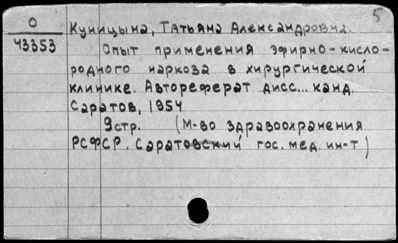 5
О Куницына, Татьяна Александровна.
43353 Опыт применения эфирно-кисло-
родного наркоза в хирургической
клинике. Автореферат дисс... канд.
Саратов, 1954
9стр. (М-во здравоохранения
РСФСР. Саратовский гос. мед. ин-т)